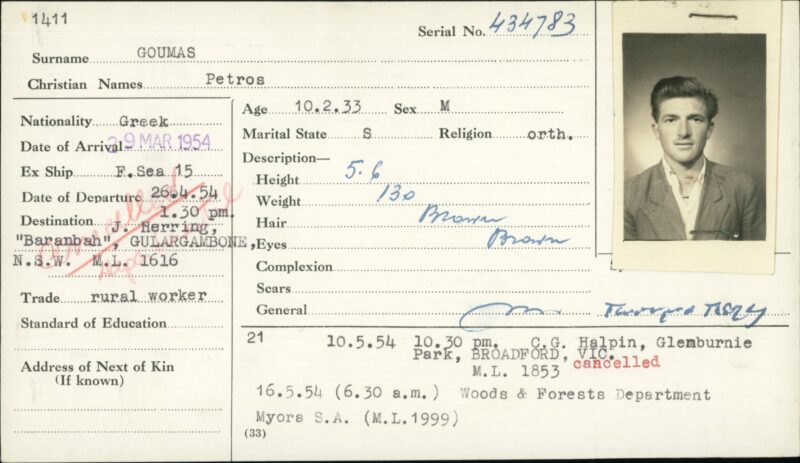 1411
Serial No. 434783
Surname GOUMAS
Christian Names Petros
Nationality Greek
Date of Arrival 29 MAR 1954
Ex Ship F.Sea 15
Date of Departure 26.4.54
1.30 pm.
Destination J. Herring,
"Baranbah", GULARGAMBONE,
N.S.W. M.L. 1616
Cancelled
Trade rural worker
Standard of Education
Address of Next of Kin
(If known)
Age 10.2.33 Sex M
Marital State S Religion orth.
Description—
Height 5.6
Weight 130
Hair Brown
Eyes Brown
Complexion
Scars
General
21 10.5.54 10.30 pm. C.G. Halpin, Glenburnie
Park, BROADFORD, VIC.
M.L. 1853 cancelled
16.5.54 (6.30 a.m.) Woods & Forests Department
Myora S.A. (M.L.1999)
(33)